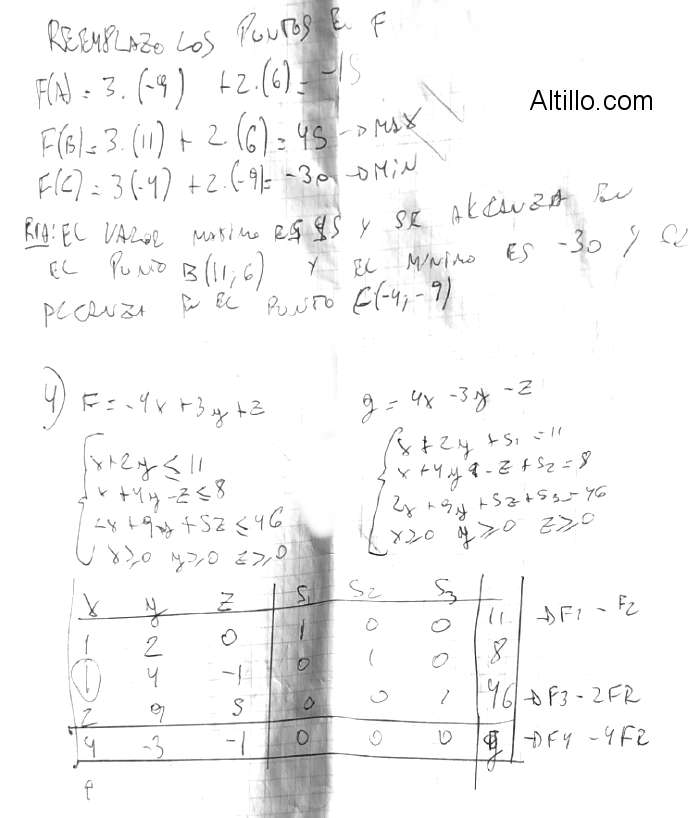 REEMPLAZO LOS PUNTOS EN F
Altillo.com
F(A) = 3.(-9) + 2.(6) = -15
F(B) = 3.(11) + 2.(6) = 45 → MAX
F(C) = 3(-4) + 2.(-9) = -30 → MIN
RTA: EL VALOR MAXIMO ES 45 Y SE ALCANZA EN
EL PUNTO B(11;6) Y EL MINIMO ES -30 Y SE
ALCANZA EN EL PUNTO C(-4;-9)
4) F = -4x + 3y + z
g = 4x - 3y - z
x + 2y ≤ 11
x + 4y - z ≤ 8
2x + 9y + 5z ≤ 46
x ≥ 0 y ≥ 0 z ≥ 0
x + 2y + S1 = 11
x + 4y - z + S2 = 8
2x + 9y + 5z + S3 = 46
x ≥ 0 y ≥ 0 z ≥ 0
x y z S1 S2 S3
1 2 0 1 0 0 11 → F1 - F2
1 4 -1 0 1 0 8
2 9 5 0 0 1 46 → F3 - 2F2
4 -3 -1 0 0 0 g → F4 - 4F2